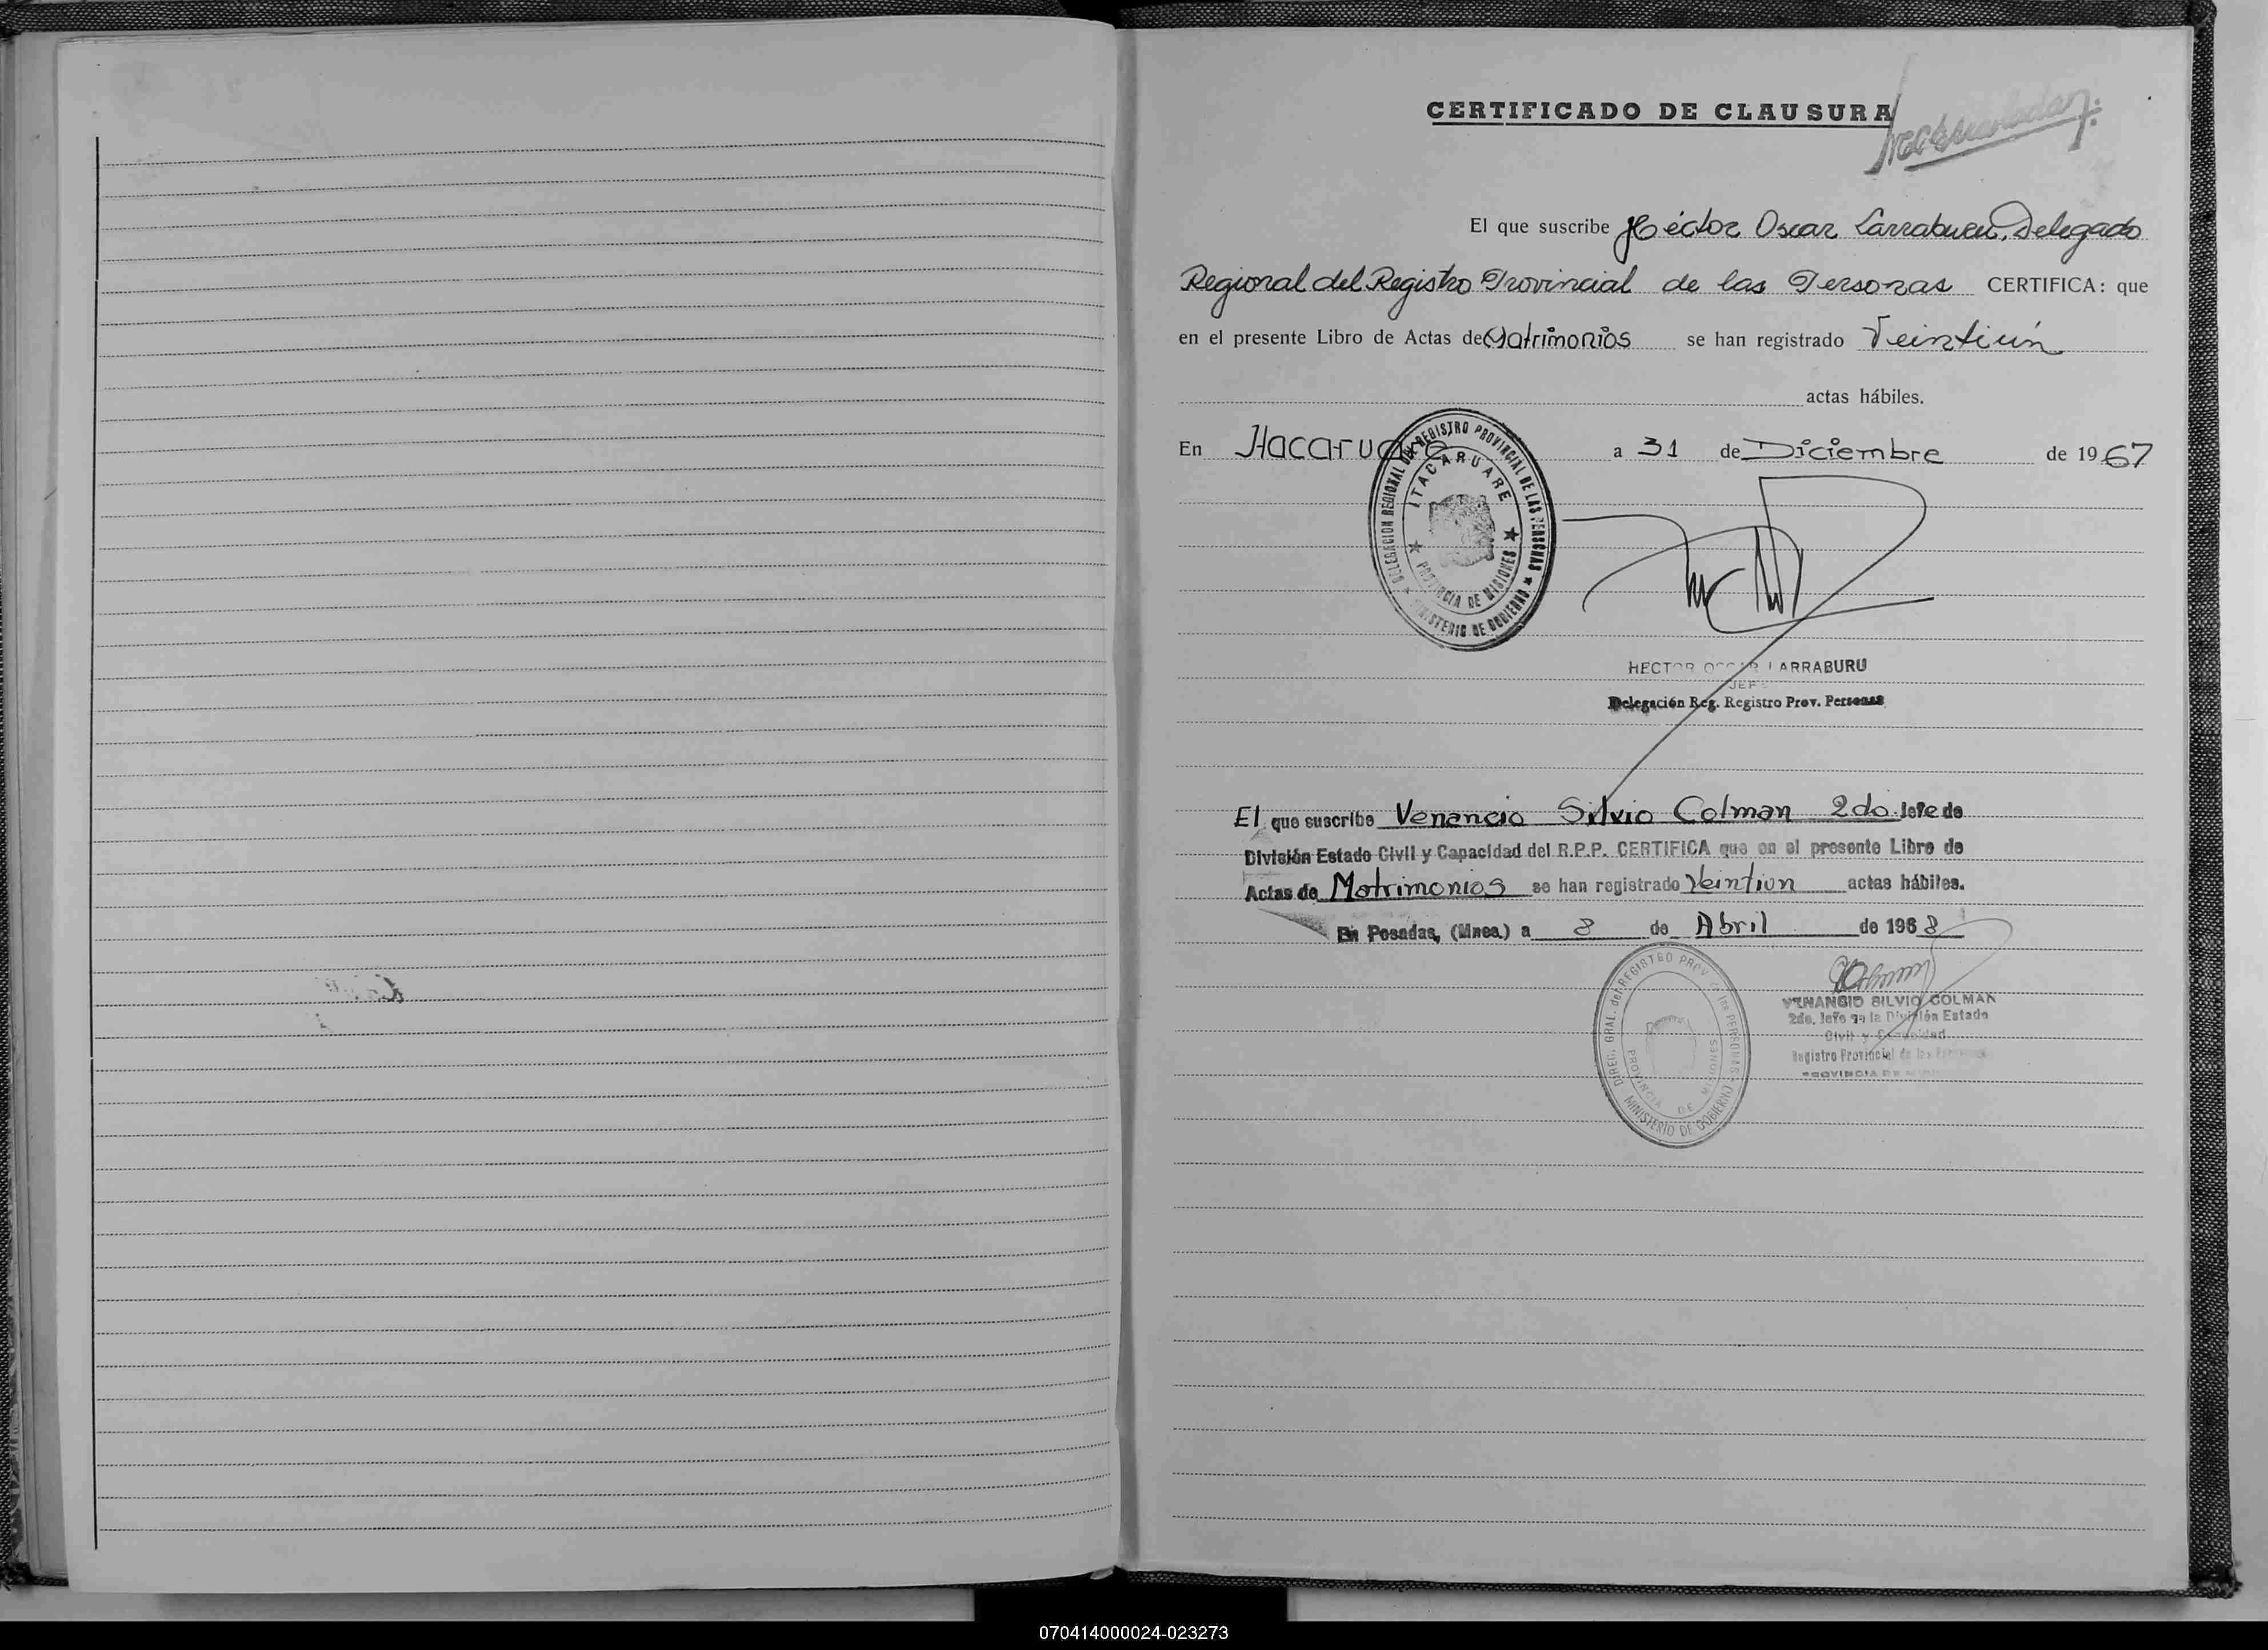 CERTIFICADO DE CLAUSURA
El que suscribe Héctor Oscar Larraburu, Delegado
Regional del Registro Provincial de las Personas CERTIFICA: que
en el presente Libro de Actas de Matrimonios se han registrado Veintiún
actas hábiles.
En Itacaruare a 31 de Diciembre de 1967
DELEGACION REGIONAL DEL REGISTRO PROVINCIAL DE LAS PERSONAS ★ MINISTERIO DE GOBIERNO ★
ITACARUARE ★ PROVINCIA DE MISIONES ★
HECTOR OSCAR LARRABURU
JEFE
Delegación Reg. Registro Prov. Personas
El que suscribe Venancio Silvio Colman 2do. Jefe de
División Estado Civil y Capacidad del R.P.P. CERTIFICA que en el presente Libro de
Actas de Matrimonios se han registrado Veintiun actas hábiles.
En Posadas, (Mnes.) a 8 de Abril de 1968
DIREC. GRAL. del REGISTRO PROV. de las PERSONAS
MINISTERIO DE GOBIERNO
PROVINCIA DE MISIONES
VENANCIO SILVIO COLMAN
2do. Jefe de la División Estado
Civil y Capacidad
Registro Provincial de las Personas
PROVINCIA DE
070414000024-023273